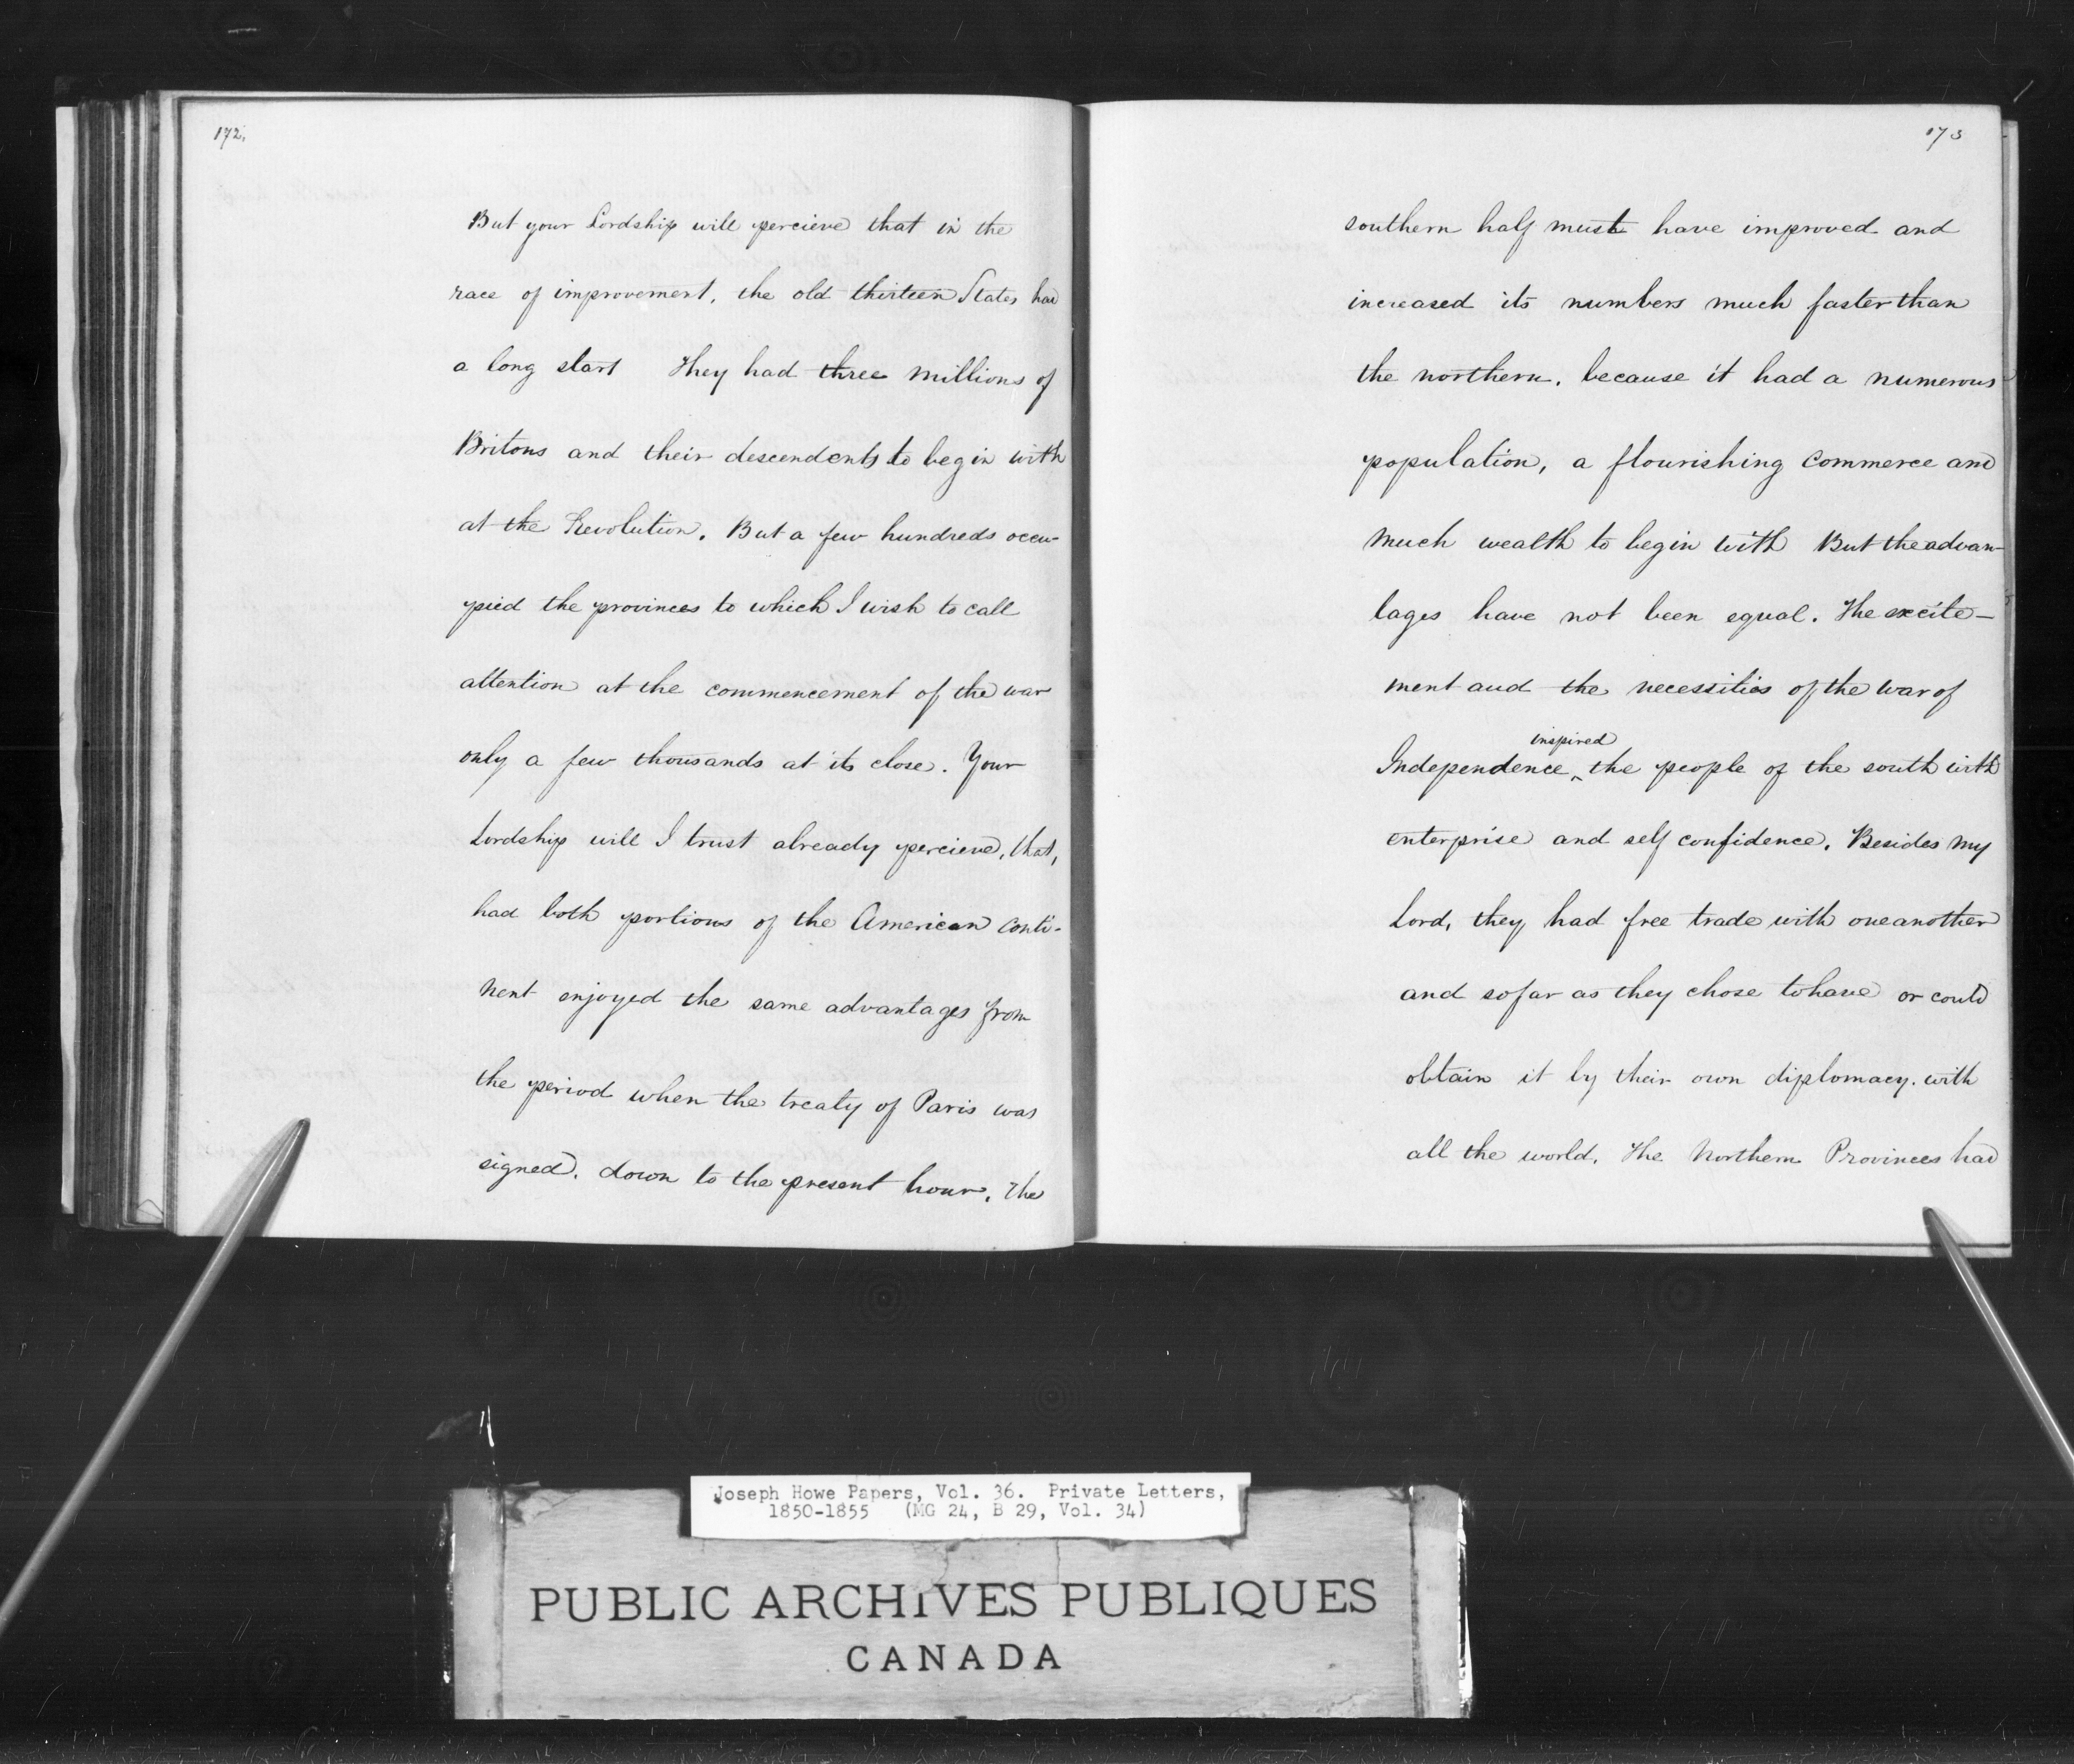 172.
But your Lordship will percieve that in the
race of improvement, the old thirteen States had
a long start They had three millions of
Britons and their descendents to begin with
at the Revolution. But a few hundreds occu-
pied the provinces to which I wish to call
attention at the commencement of the war
only a few thousands at its close. Your
Lordship will I trust already percieve, that,
had both portions of the American conti-
nent enjoyed the same advantages from
the period when the treaty of Paris was
signed, down to the present hour, the
173
southern half must have improved and
increased its numbers much faster than
the northern, because it had a numerous
population, a flourishing commerce and
much wealth to begin with But the advan-
tages have not been equal. The excite-
ment and the necessities of the war of
inspired
Independence ^ the people of the south with
enterprise and self confidence. Besides my
Lord, they had free trade with one another
and so far as they chose to have or could
obtain it by their own diplomacy, with
all the world. The Northern Provinces had
Joseph Howe Papers, Vol. 36. Private Letters,
1850-1855 (MG 24, B 29, Vol. 34)
PUBLIC ARCHIVES PUBLIQUES
CANADA